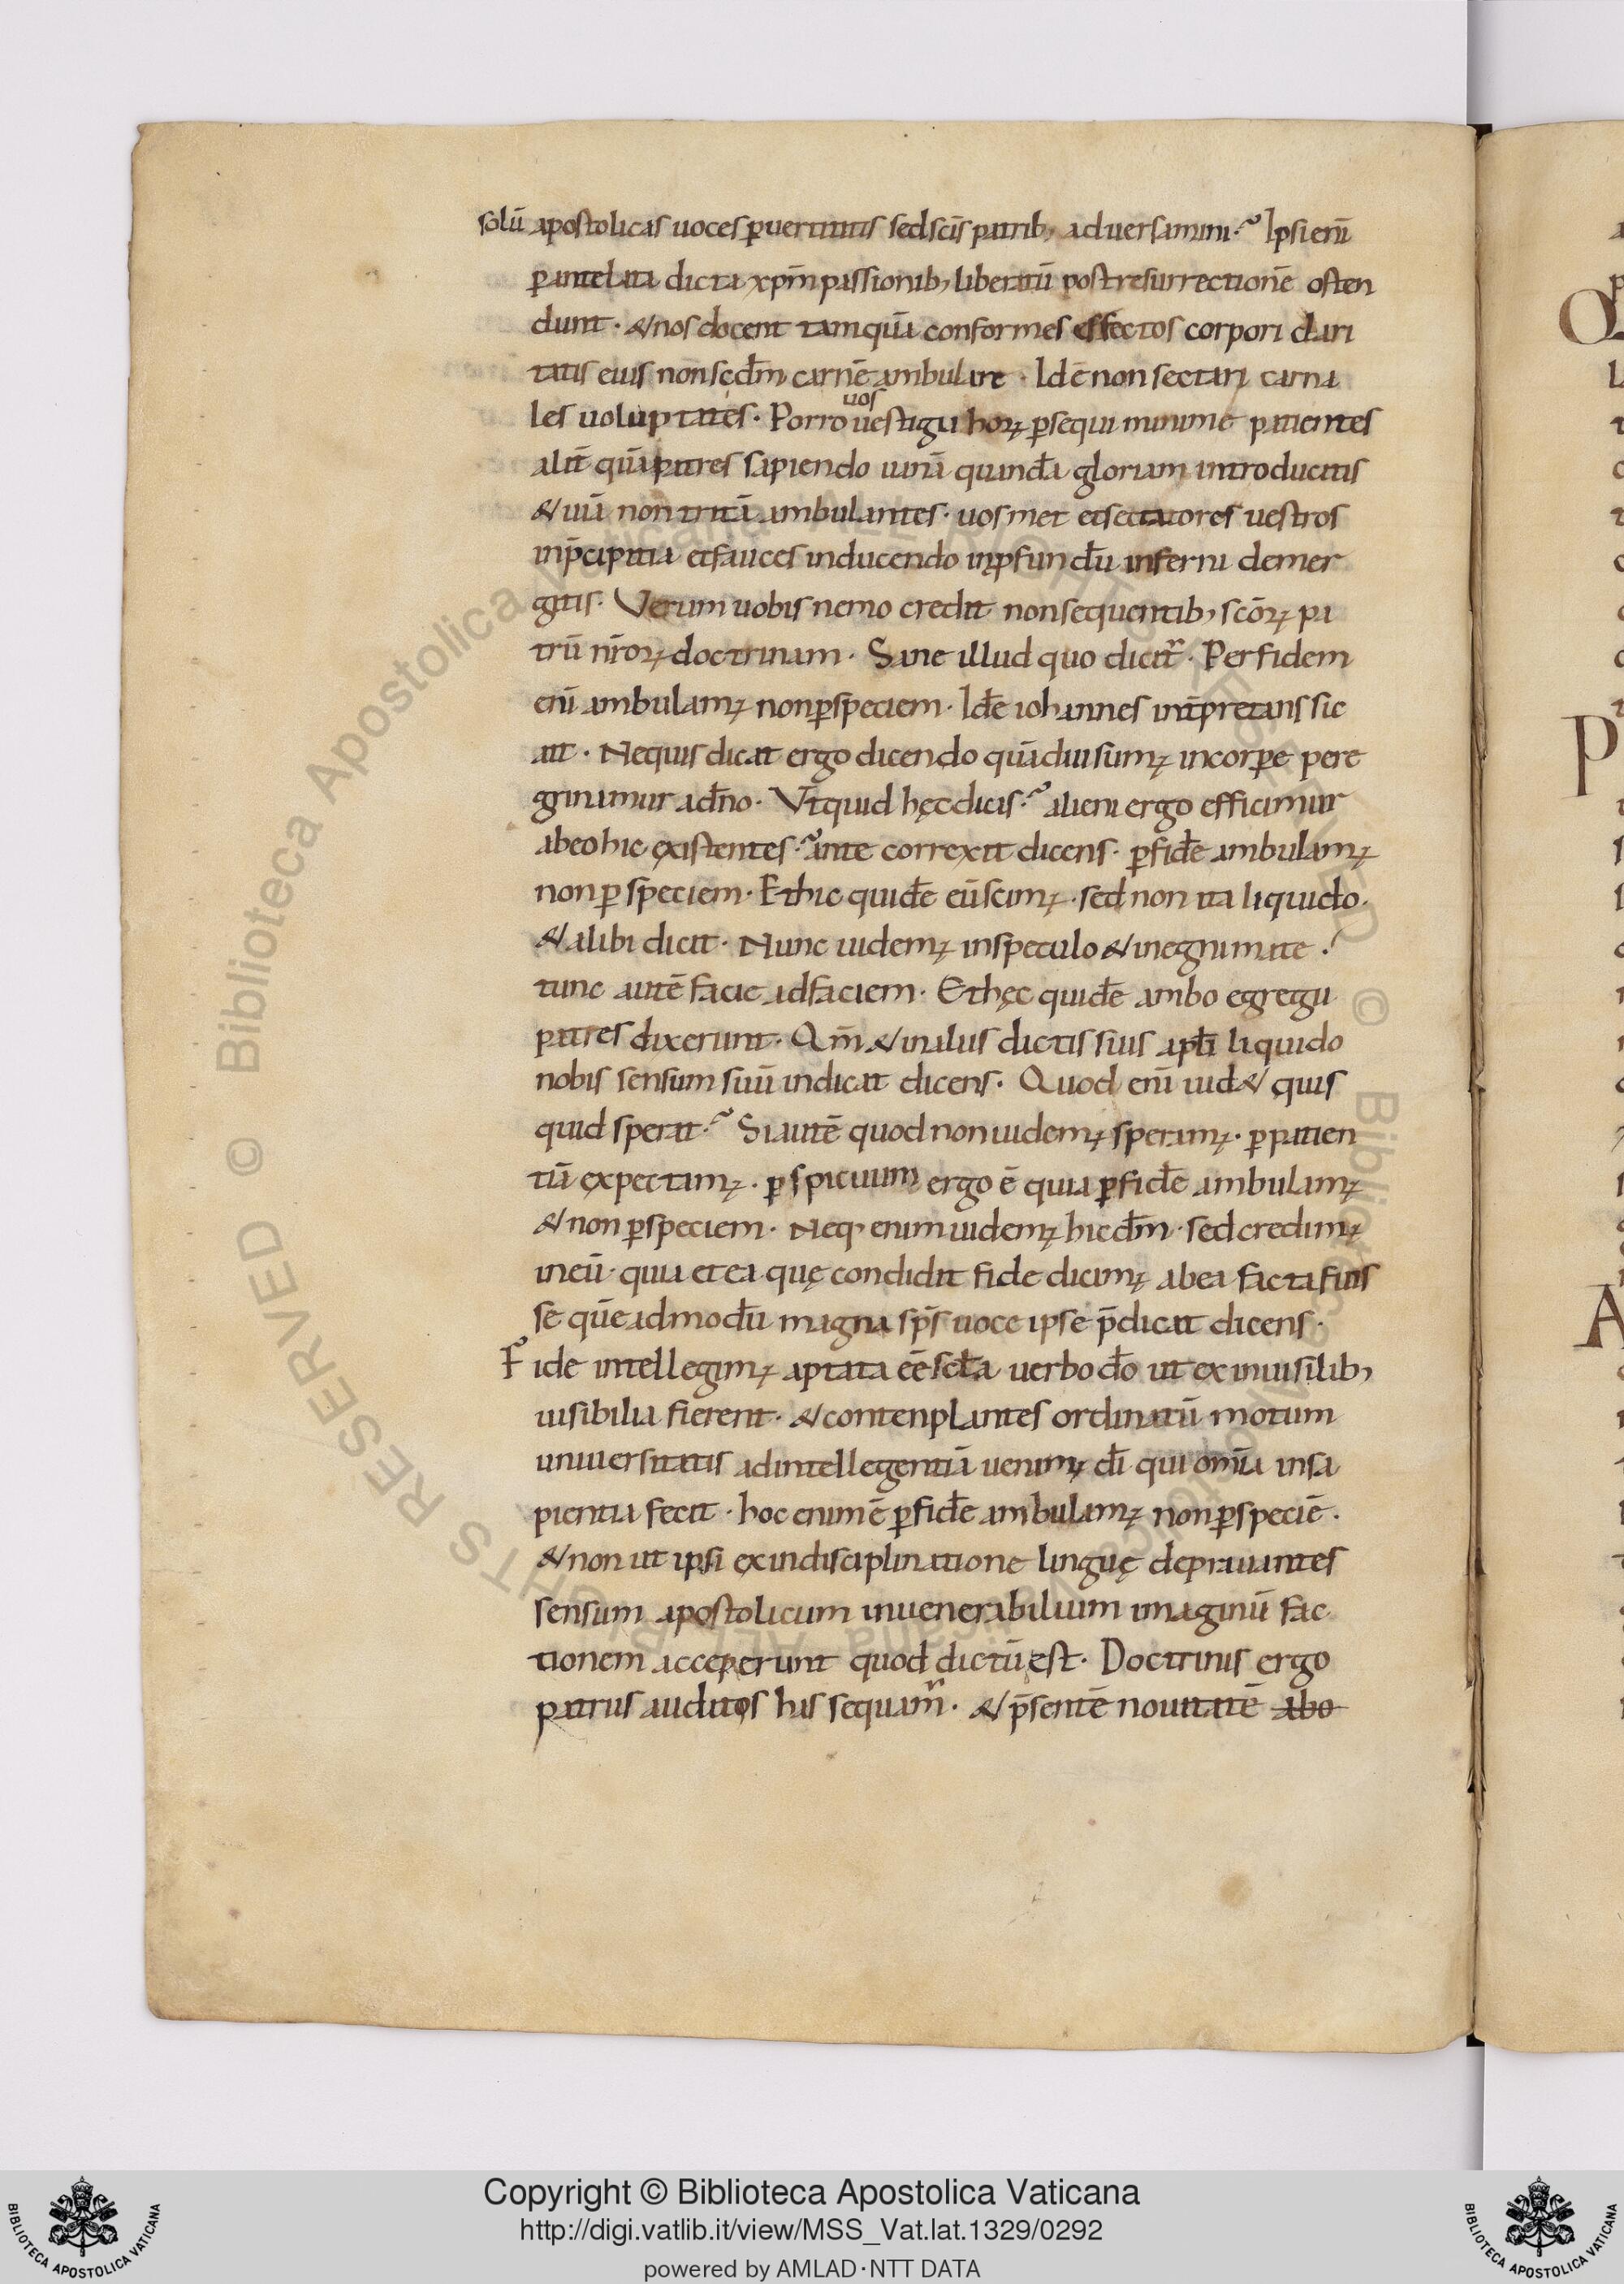 solū apostolicas uoces ꝑuertitis sed scīs patrib; aduersamini? Ipsi enī
ꝑ antelata dicta xp̄m passionib; liberatū post resurrectionē osten
dunt· & nos docent tamquā conformes effectos corpori clari
tatis eius non secdm̄ carnē ambulare· Id ē non sectari carna
les uoluptates· Porro uos uestigii hoꝝ ꝑsequi minime patientes
alit̄ quā patres sapiendo uanā quandā gloriam introducitis
& uiā non tritā ambulantes· uosmet et sectatores uestros
in p̄cipitia et fauces inducendo in ꝓfundū inferni demer
gitis· Verum uobis nemo credit non sequentib; scōꝝ pa
trū nr̄oꝝ doctrinam· Sane illud quo dicit᷑· Per fidem
enī ambulamꝰ non ꝑ speciem· Idē iohannes int̄pretans sic
ait· Ne quis dicat ergo dicendo quādiu sumꝰ in corꝑe pere
grinamur a dn̄o· Vt quid hęc dicis? alieni ergo efficimur
ab eo hic ęxistentes? ante correxit dicens· ꝑ fidē ambulamꝰ
non ꝑ speciem· Et hic quidē eū scimꝰ· sed non ita liquido·
& alibi dicit· Nunc uidemꝰ in speculo & in egnimate·
tunc autē facie ad faciem· Et hęc quidē ambo egregii
patres dixerunt· Qm̄ & in aliis dictis suis aptī liquido
nobis sensum suū indicat dicens· Quod enī uid& quis
quid sperat? Si autē quod non uidemꝰ speramꝰ· ꝑ patien
tiā ęxpectamꝰ· ꝑspicuum ergo ē quia ꝑ fidē ambulamꝰ
& non ꝑ speciem· Neq; enim uidemꝰ hic dm̄· sed credimꝰ
in eū· quia et ea quę condidit fide dicimꝰ ab ea facta fuis
se quēadmodū magna sp̄s uoce ipse p̄dicat dicens·
Fide intellegimꝰ aptata eē sclā uerbo dō ut ex inuisilib;
uisibilia fierent· & contenplantes ordinatū motum
uniuersitatis ad intellegentiā uenimꝰ dī qui om̄ia in sa
pientia fecit· hoc enim ē ꝑ fidē ambulamꝰ non ꝑ speciē·
& non ut ipsi ęx indisciplinatione linguę deprauantes
sensum apostolicum in uenerabilium imaginū fac
tionem acceperunt quod dictū est· Doctrinis ergo
patrus auditos his sequam᷑· & p̄sentē nouitatē abo
Copyright © Biblioteca Apostolica Vaticana
http://digi.vatlib.it/view/MSS_Vat.lat.1329/0292
powered by AMLAD·NTT DATA